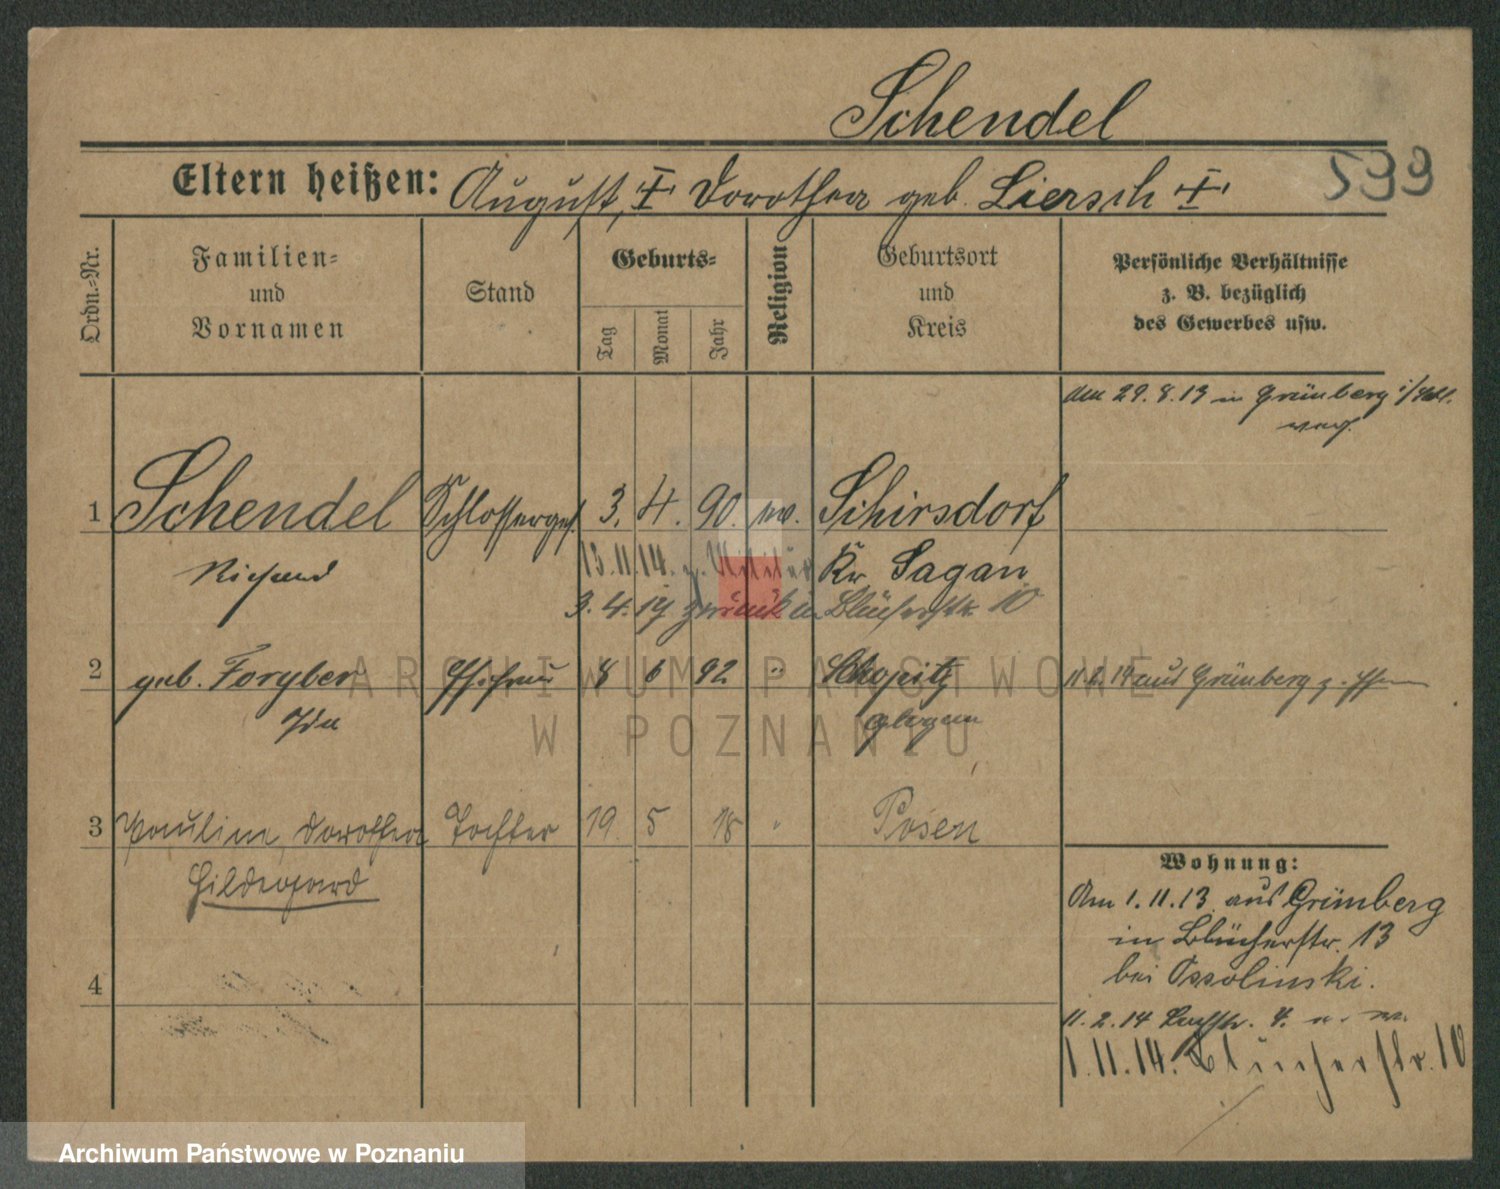 Schendel
599
Eltern heißen: August, † Dorothea geb. Liersch †
Ordn.-Nr.
Familien-
und
Vornamen
Stand
Geburts-
Tag
Monat
Jahr
Religion
Geburtsort
und
Kreis
Persönliche Verhältnisse
z. B. bezüglich
des Gewerbes usw.
den 29. 8. 13 in Grünberg i/Schl.
1 Schendel Schlosserges. 3. 4. 90. ev. Schirsdorf
Richard
Kr. Sagan
13.11.14. z. Militär
3. 4. 19 zurück in Blücherstr. 10
2 geb. Foryber Ehefrau 8 6 92 " Schopitz
Ida
Glogau
11.2.14 aus Grünberg z.
3 Pauline, Dorothea Tochter 19. 5 18 " Posen
Hildegard
4
Wohnung:
Am 1.11.13 aus Grünberg
in Blücherstr. 13
bei Ossolinski.
11.2.14
1.11.14. Blücherstr. 10
ARCHIWUM PAŃSTWOWE
W POZNANIU
Archiwum Państwowe w Poznaniu